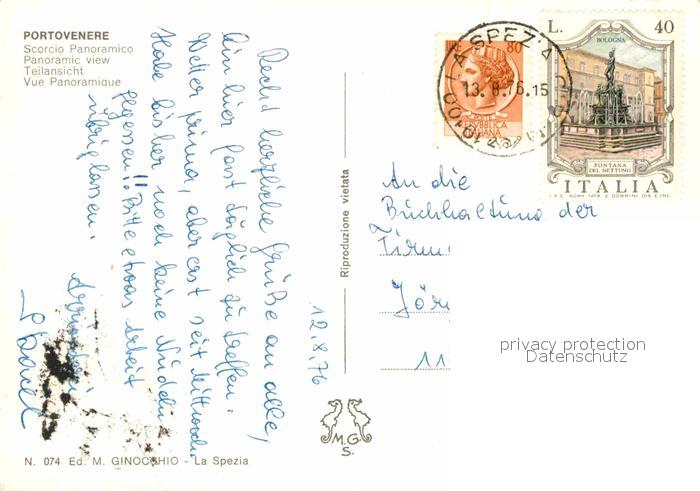 PORTOVENERE
Scorcio Panoramico
Panoramic view
Teilansicht
Vue Panoramique
Recht herzliche Grüße an alle,
bin hier fast täglich zu treffen.
Wetter prima, aber erst seit Mittwoch.
Habe bisher noch keine Nudeln
gegessen!! Bitte etwas Arbeit
übriglassen.
12.8.76
Riproduzione vietata
M.G.
S.
N. 074 Ed. M. GINOCCHIO - La Spezia
80
POSTE
REPUBBLICA
ITALIANA
LA SPEZIA
13.8.76.15
L. 40
BOLOGNA
FONTANA
DEL NETTUNO
ITALIA
An die
Buchhaltung der
Firm
Jör
11
privacy protection
Datenschutz